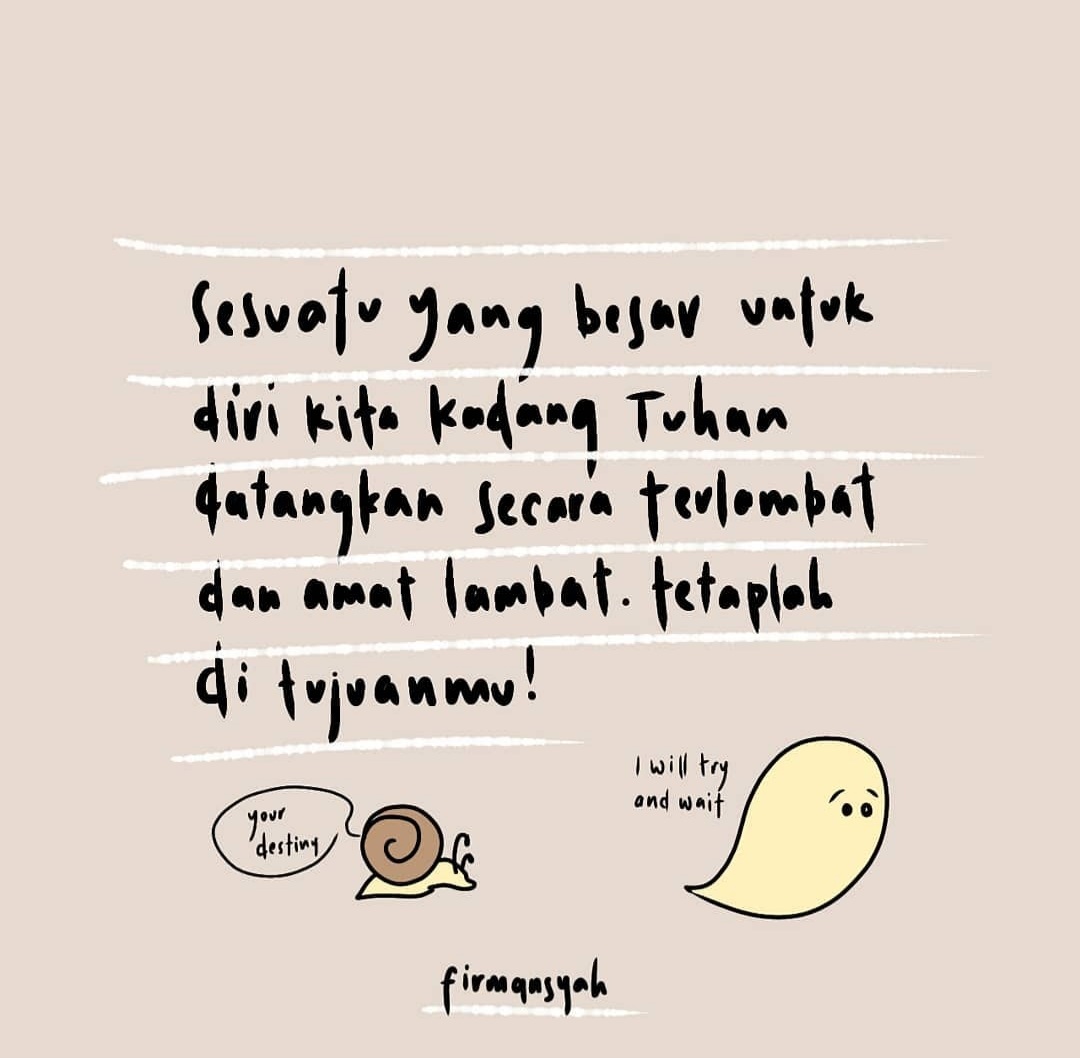 Sesuatu yang besar untuk
diri kita kadang Tuhan
datangkan secara terlambat
dan amat lambat. tetaplah
di tujuanmu!
your
destiny
I will try
and wait
firmansyah